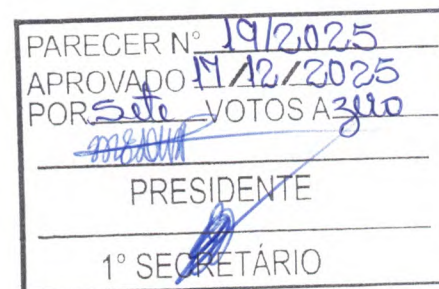 PARECER Nº 19/2025
APROVADO 17/12/2025
POR Sete VOTOS A zero
PRESIDENTE
1º SECRETÁRIO